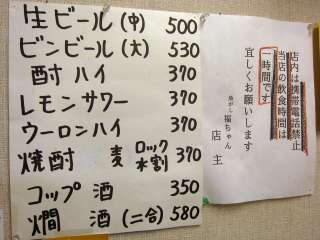 生ビール(中) 500
ビンビール(大) 530
酎ハイ 370
レモンサワー 370
ウーロンハイ 370
焼酎 麦 ロック 水割 370
コップ酒 350
燗酒(二合) 580
店内は携帯電話禁止
当店の飲食時間は
一時間です
宜しくお願いします
魚がし 福ちゃん
店主